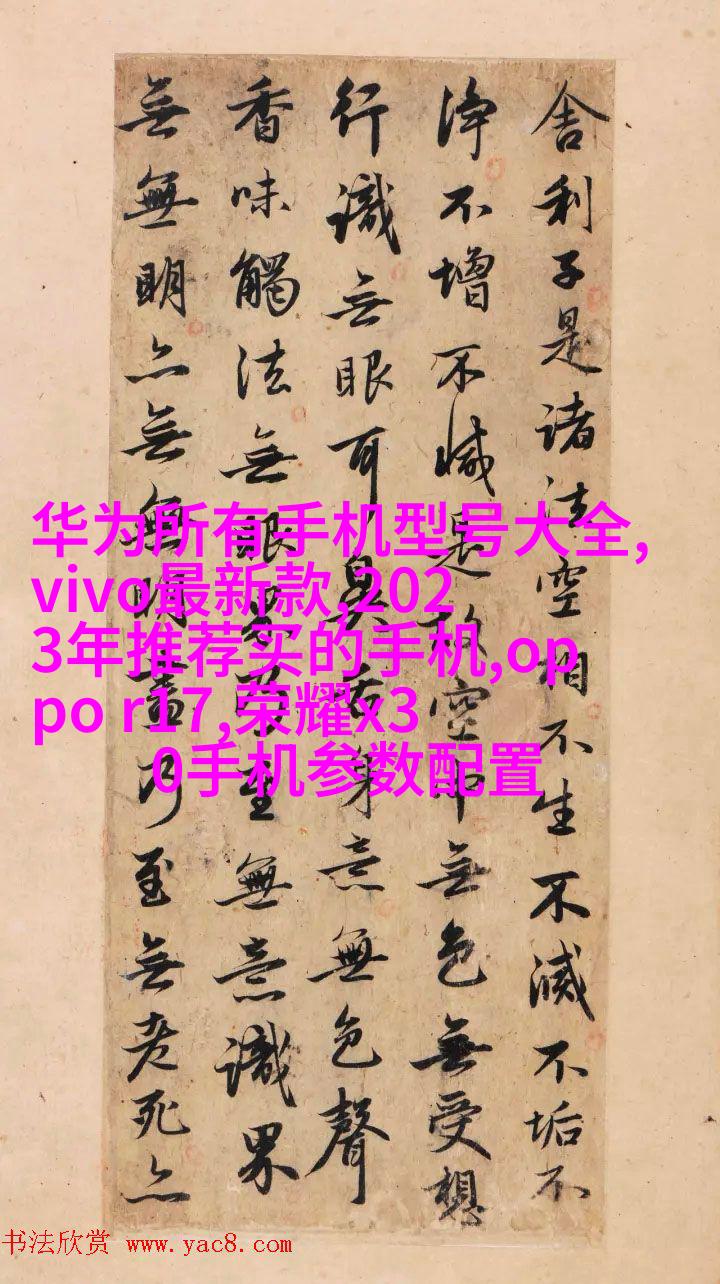 舍利子是諸法空相不生不滅不垢不
淨不增不減是故空中無色無受想
行識無眼耳鼻舌身意無色聲
香味觸法無眼界乃至無意識界
無無明亦無無明盡乃至無老死亦
华为所有手机型号大全,
vivo最新款,202
3年推荐买的手机,op
po r17,荣耀x3
0手机参数配置
书法欣赏 www.yac8.com